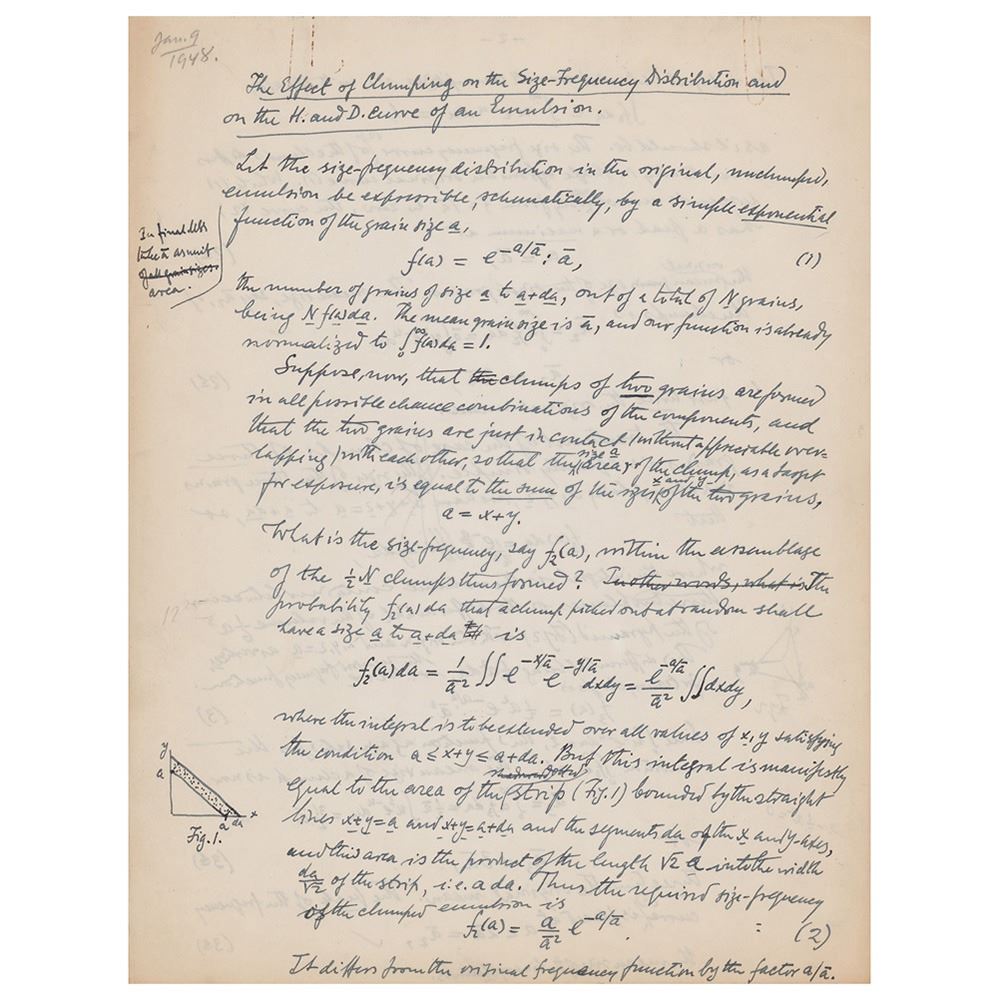 Jan. 9
1948.
The Effect of Clumping on the Size-Frequency Distribution and
on the H. and D. curve of an Emulsion.
Let the size-frequency distribution in the original, unclumped,
emulsion be expressible, schematically, by a simple exponential
function of the grain size a,
f(a) = e^{-a/ā} : ā, (1)
In final
take ā as unit
of all grain sizes
area.
the number of grains of size a to a+da, out of a total of N grains,
being N f(a)da. The mean grain size is ā, and our function is already
normalized to ∫₀^∞ f(a)da = 1.
Suppose, now, that the clumps of two grains are formed
in all possible chance combinations of the components, and
that the two grains are just in contact (without appreciable over-
lapping) with each other, so that the size a (area) of the clump, as a target
for exposure, is equal to the sum of the sizes x and y of the two grains,
a = x+y.
What is the size-frequency, say f₂(a), within the assemblage
of the ½N clumps thus formed? In other words, what is The
probability f₂(a)da that a clump picked out at random shall
have a size a to a+da is
f₂(a)da = 1/ā² ∫∫ e^{-x/ā} e^{-y/ā} dxdy = e^{-a/ā}/ā² ∫∫ dxdy,
where the integral is to be extended over all values of x, y satisfying
the condition a ≤ x+y ≤ a+da. But this integral is manifestly
equal to the area of the strip (Fig. 1) bounded by the straight
lines x+y=a and x+y=a+da and the segments da of the x and y-axes,
and this area is the product of the length √2 a into the width
da/√2 of the strip, i.e. a da. Thus the required size-frequency
of the clumped emulsion is
f₂(a) = a/ā² e^{-a/ā} : (2)
It differs from the original frequency function by the factor a/ā.
y
a
a da x
Fig. 1.